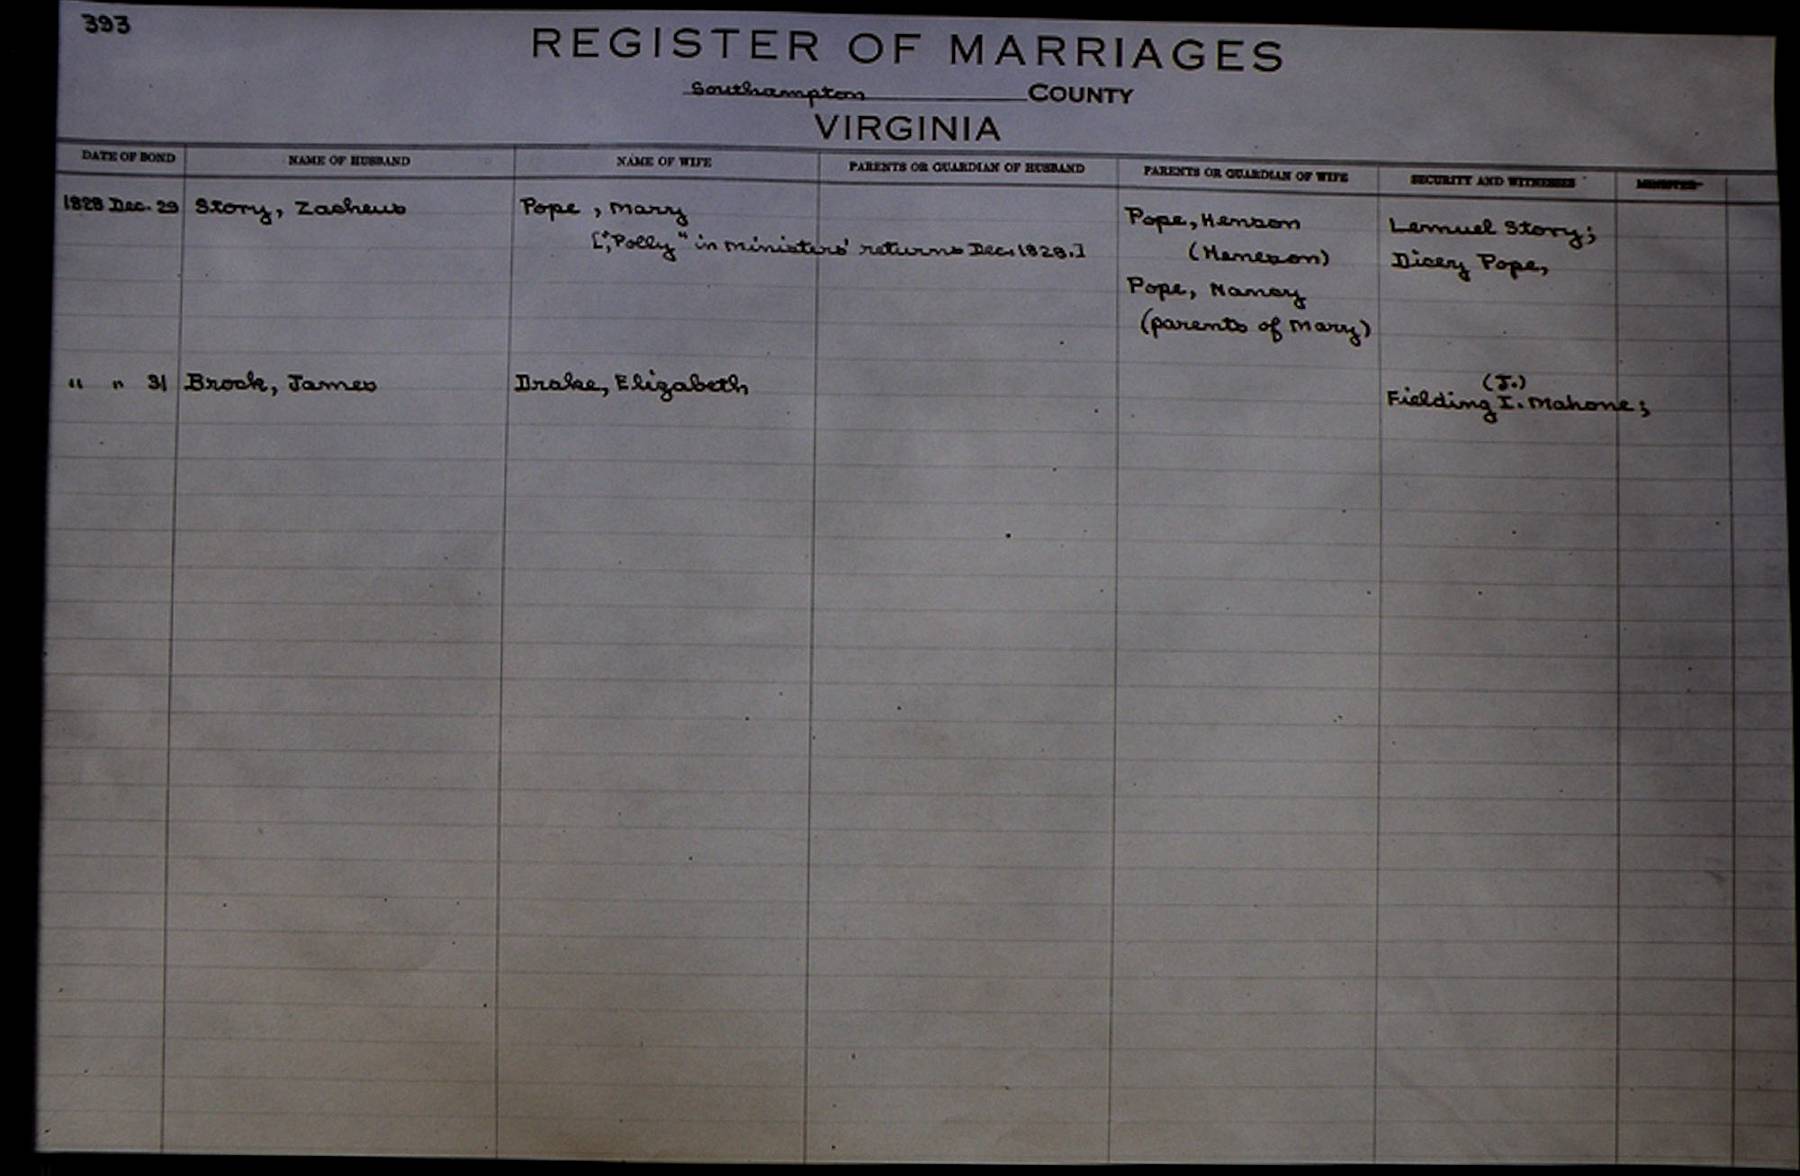 393
REGISTER OF MARRIAGES
Southampton COUNTY
VIRGINIA
DATE OF BOND NAME OF HUSBAND NAME OF WIFE PARENTS OR GUARDIAN OF HUSBAND PARENTS OR GUARDIAN OF WIFE SECURITY AND WITNESSES MINISTER
1828 Dec. 29 Story, Zacheus Pope, Mary Pope, Henson Lemuel Story;
["Polly" in ministers' returns Dec. 1828.] (Heneson) Dicey Pope,
Pope, Nancy
(parents of Mary)
" " 31 Brock, James Drake, Elizabeth (J.)
Fielding I. Mahone;